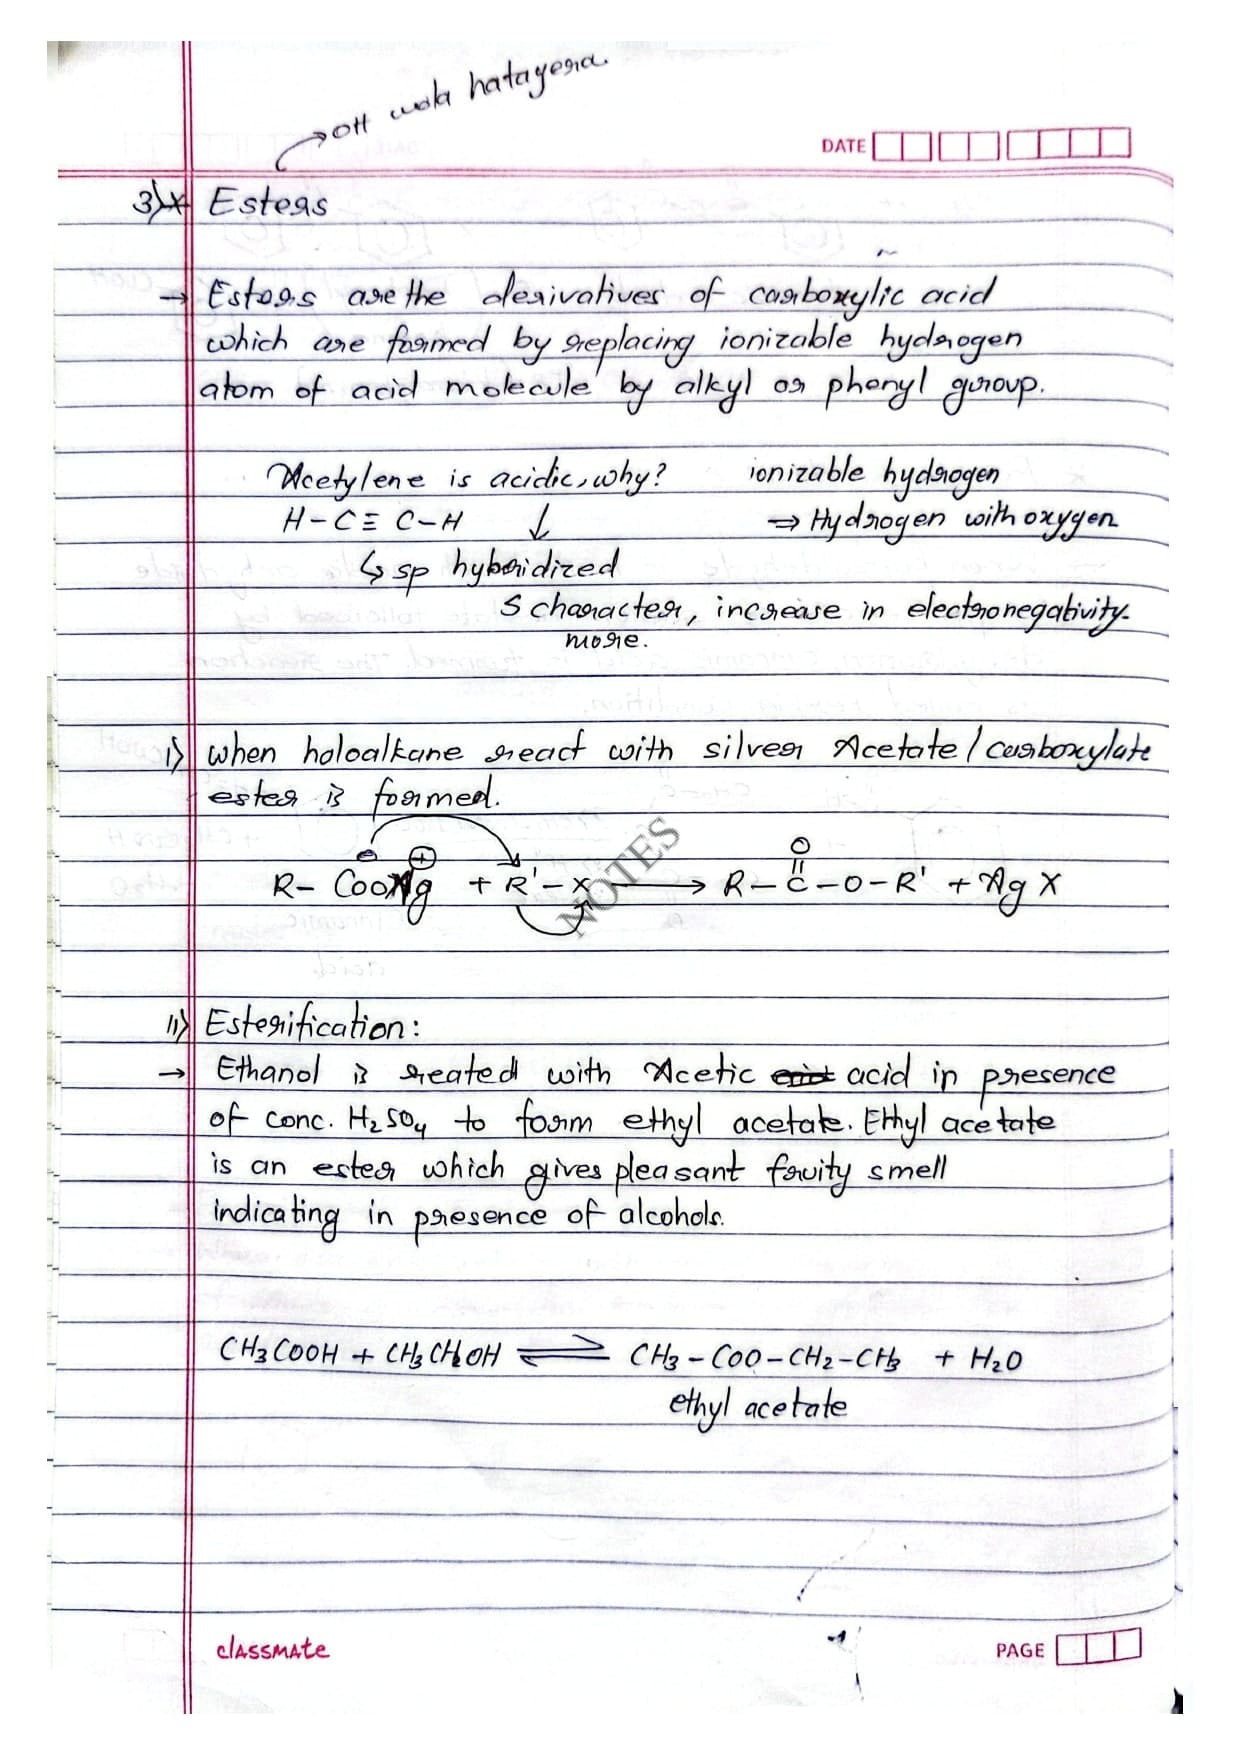 →OH wala hatayera.
DATE
3) * Esters
→ Esters are the derivatives of carboxylic acid
which are formed by replacing ionizable hydrogen
atom of acid molecule by alkyl or phenyl group.
Acetylene is acidic, why? ionizable hydrogen
H-C≡C-H ↓ ⇒ Hydrogen with oxygen
↳ sp hybridized
S character, increase in electronegativity.
more.
i) when haloalkane react with silver Acetate/carboxylate
ester is formed.
R-COO⊖Ag⊕ + R'-X → R-C(=O)-O-R' + AgX
NOTES
ii) Esterification:
→ Ethanol is reated with Acetic acid in presence
of conc. H2SO4 to form ethyl acetate. Ethyl acetate
is an ester which gives pleasant fruity smell
indicating in presence of alcohols.
CH3COOH + CH3CH2OH ⇌ CH3-COO-CH2-CH3 + H2O
ethyl acetate
classmate
PAGE